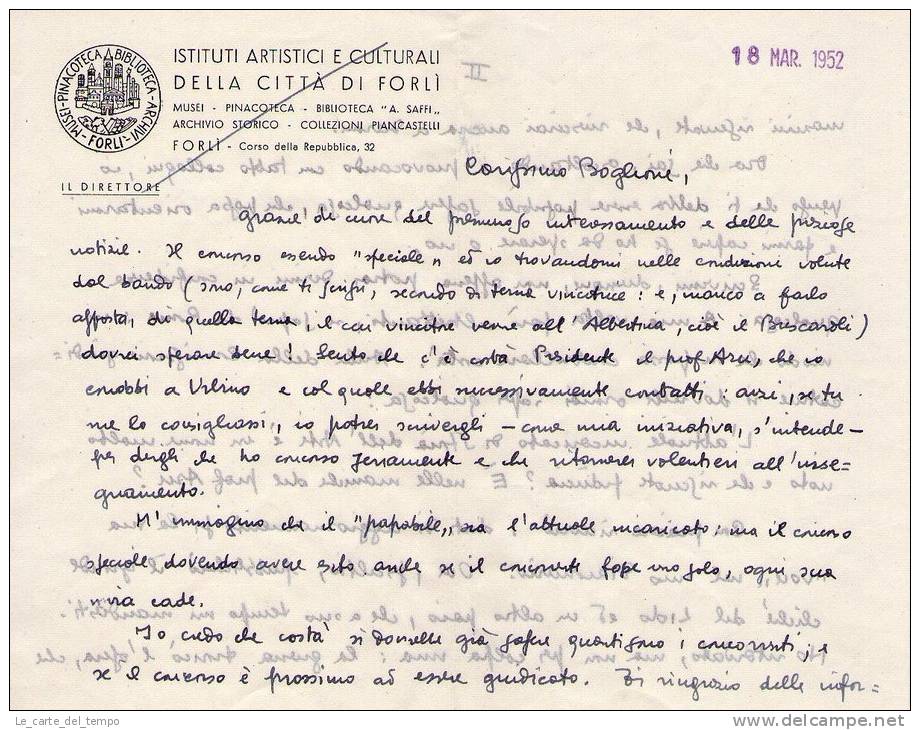 ISTITUTI ARTISTICI E CULTURALI
DELLA CITTÀ DI FORLÌ
MUSEI - PINACOTECA - BIBLIOTECA "A. SAFFI„
ARCHIVIO STORICO - COLLEZIONI PIANCASTELLI
FORLÌ - Corso della Repubblica, 32
MUSEI-PINACOTECA-BIBLIOTECA-ARCHIVI
-FORLI-
IL DIRETTORE
18 MAR. 1952
II
Carissimo Baglioni,
grazie di cuore del premuroso interessamento e delle preziose
notizie. Il concorso essendo "speciale" ed io trovandomi nelle condizioni volute
dal bando (sono, come ti scrissi, secondo di terna vincitrice: e, manco a farlo
apposta, di quella terna, il cui vincitore venne all'Albertina, cioè il Brescaroli)
dovrei sperare bene! Sento che c'è costà Presidente il prof. Arcu, che io
conobbi a Urbino e col quale ebbi successivamente contatti: anzi, se tu
me lo consigliassi, io potrei scrivergli – come mia iniziativa, s'intende –
per dirgli che ho concorso seriamente e che ritornerei volentieri all'inse=
gnamento.
M'immagino che il "papabile„ sia l'attuale incaricato: ma il concorso
speciale dovendo avere esito anche se il concorrente fosse uno solo, ogni sua
via cade.
Io, credo che costà si dovrebbe già sapere quanti sono i concorrenti; e
se il concorso è prossimo ad essere giudicato. Ti ringrazio delle infor=
Le_carte_del_tempo
delcampe.net